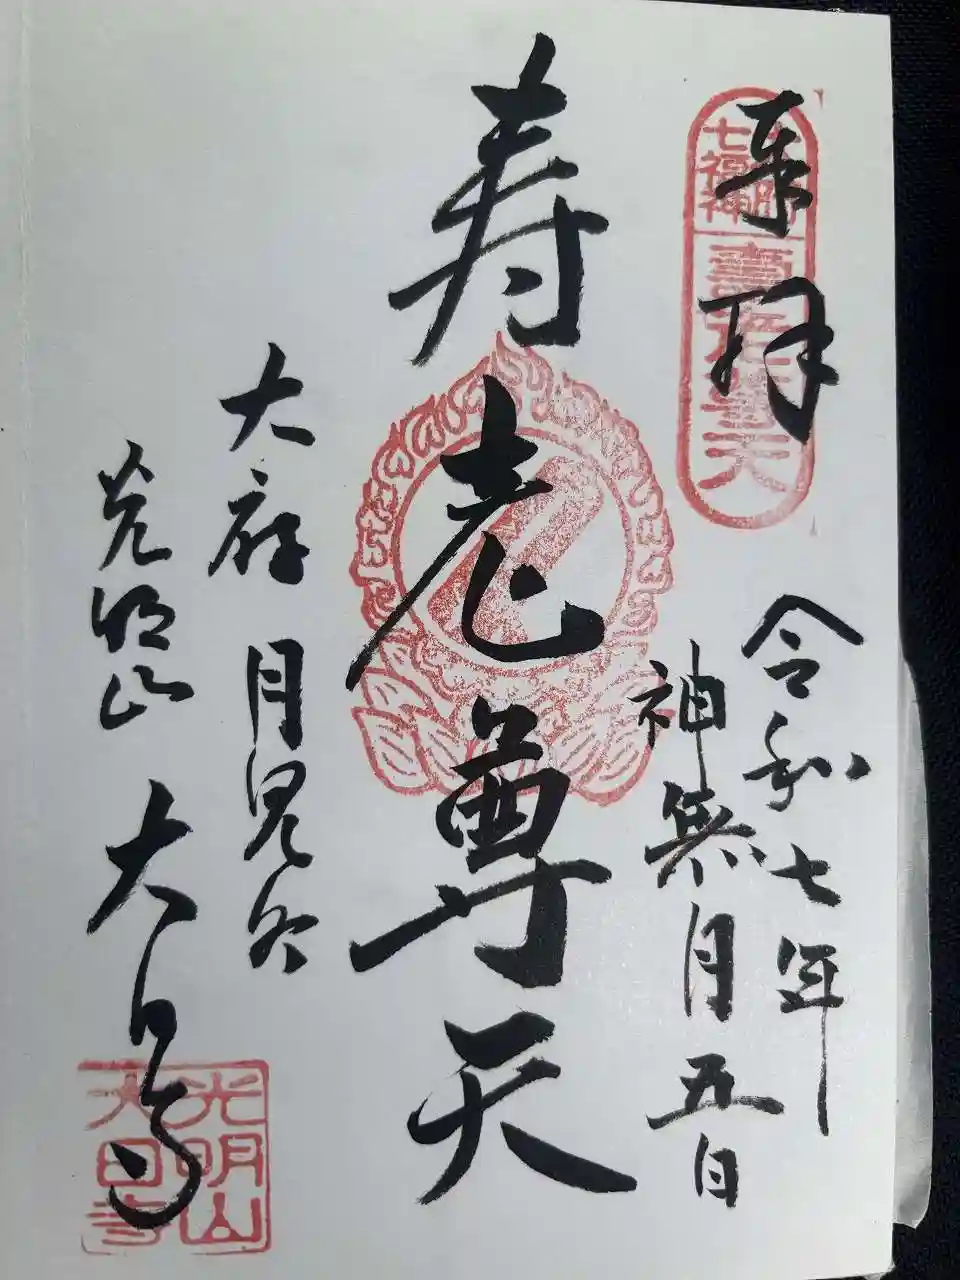 奉拝
七福神
壽老尊天
令和七年
神無月五日
寿老尊天
大府 月見
光明山 大日寺
光明山
大日寺